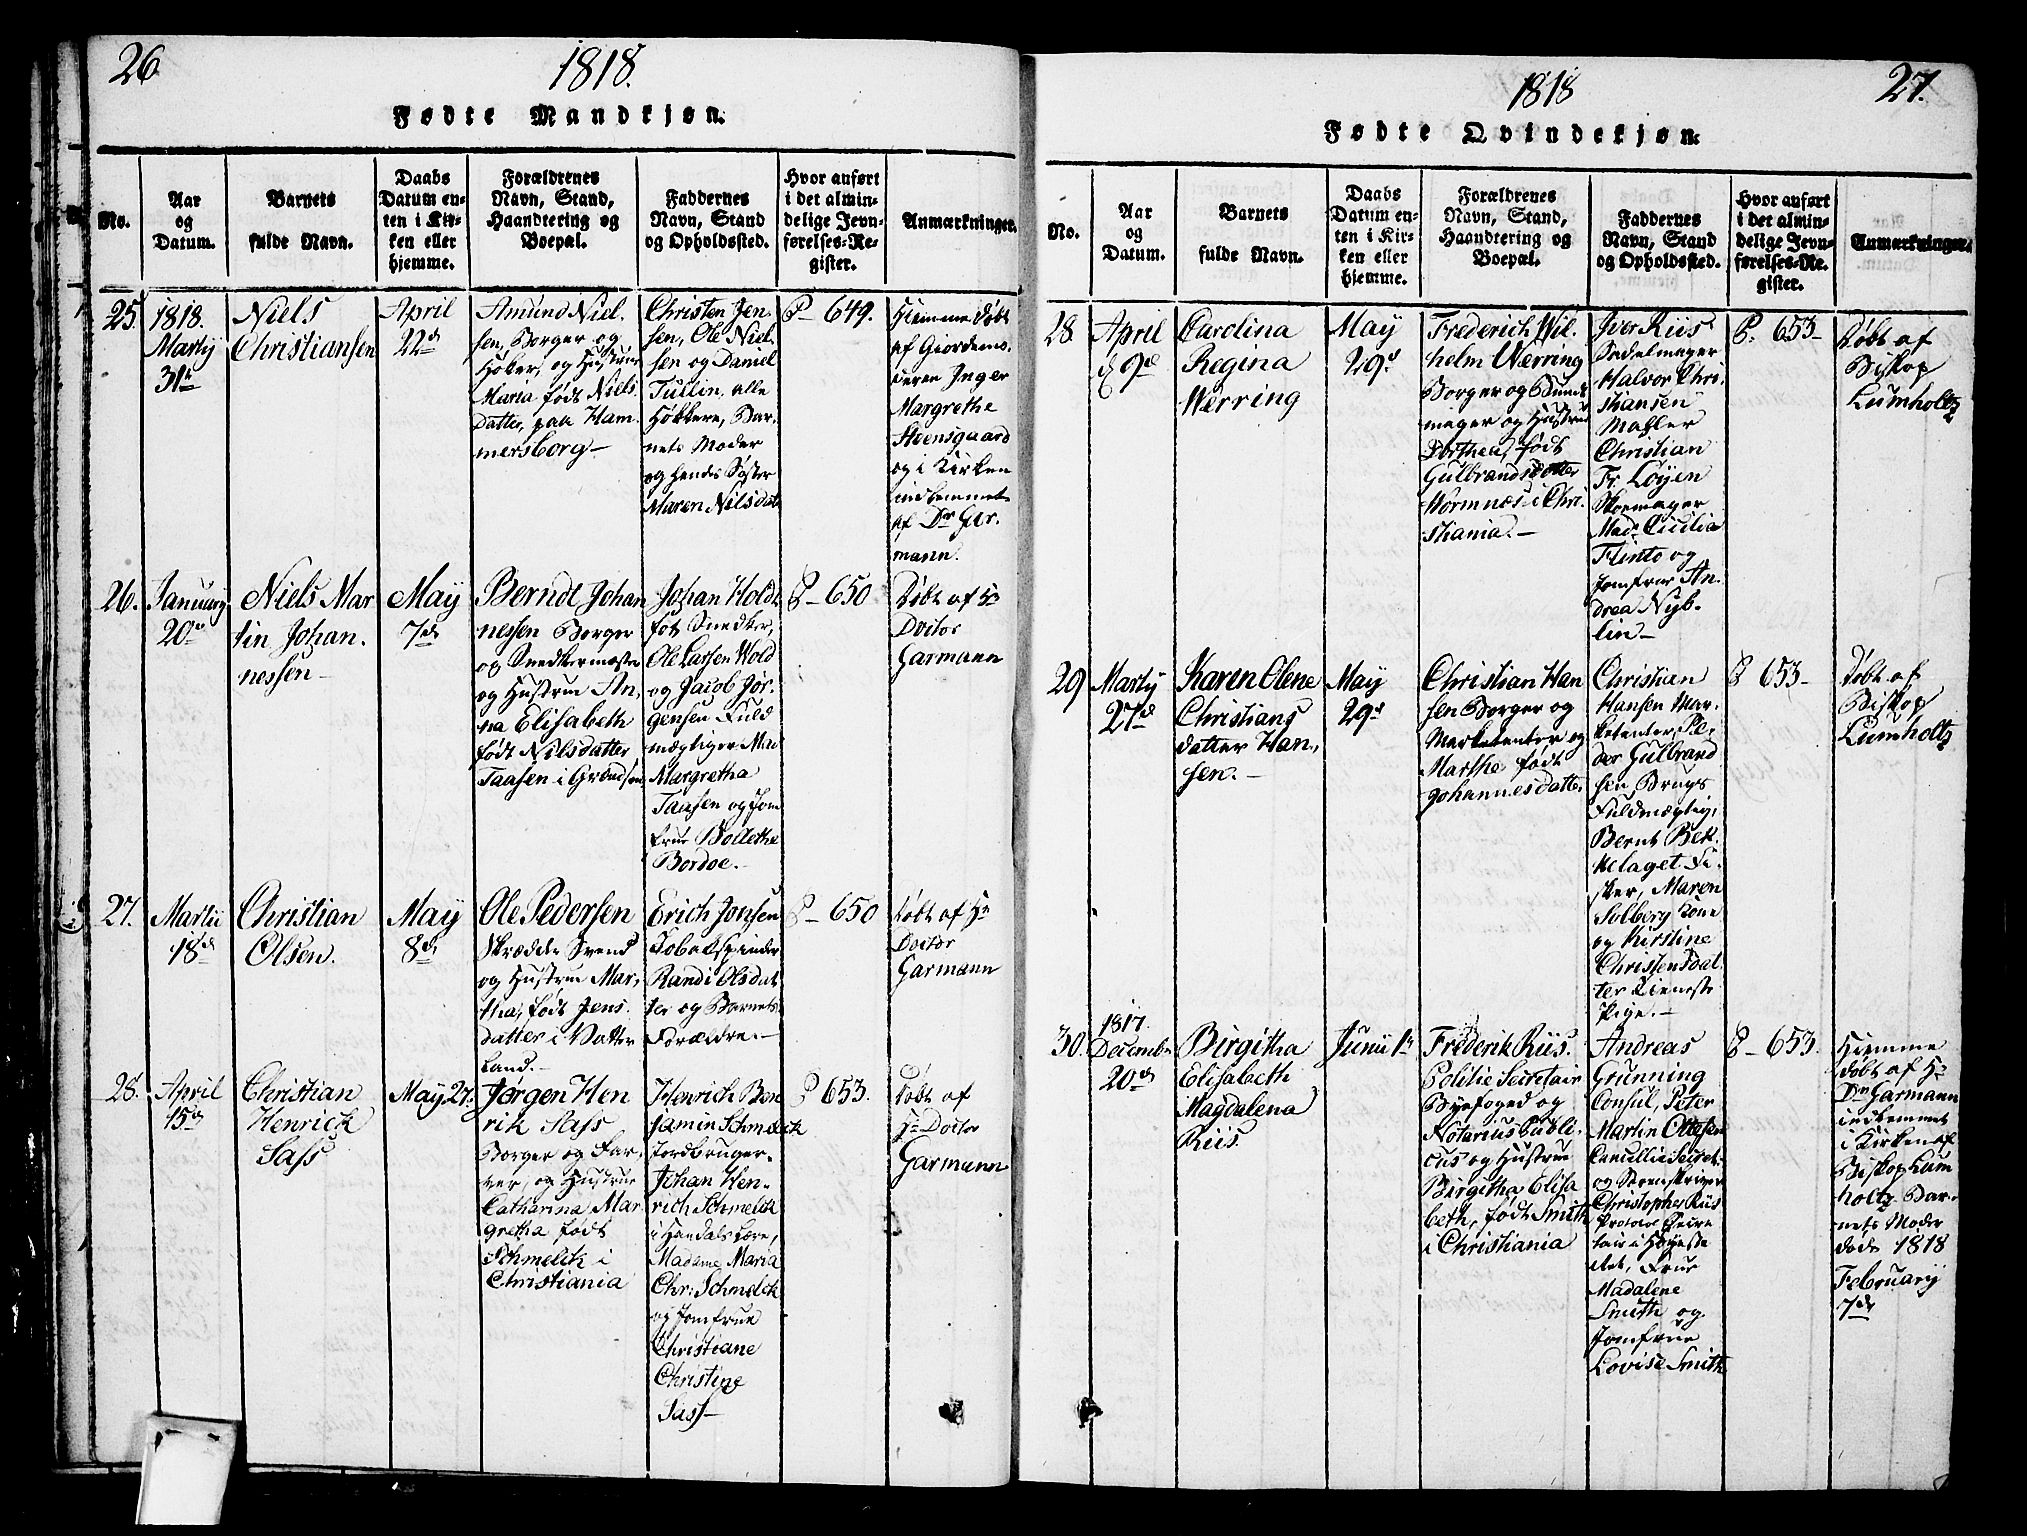 26
1818.
Fødte Mandkjøn.
No.
Aar
og
Datum.
Barnets
fulde Navn.
Daabs
Datum en-
ten i Kir-
ken eller
hjemme.
Forældrenes
Navn, Stand,
Haandtering og
Boepæl.
Faddernes
Navn, Stand
og Opholdssted.
Hvor anført
i det almin-
delige Jevn-
førelses-Re-
gister.
Anmærkninger.
25.
1818.
Martij
31te
Niels
Christiansen
April
22d
Amund Niel-
sen, Borger og
Høker, og Hustrue
Maria født Niels
datter, paa Ham-
mersborg-
Christen Jen-
sen, Ole Niel-
sen og Daniel
Tullin, alle
Høkkere, Bar-
nets Moder
og hendes Søster
Maren Nilsdat
P - 649.
Hiemme døbt
af Giordemo-
deren Inger
Margrethe
Steensgaard
og i Kirken
af Dr Gar-
mann.
26.
January
20de
Niels Mar
tin Johan-
nessen-
May
7d
Berndt Johan
nessen Borger
og Snedkermester
og Hustrue An-
na Elisabeth
født Nilsdatter
Taasen i Grændsen
Johan Holdt
fot Snedker,
Ole Larsen Wold
og Jacob Jør-
gensen Fuld
mægtiger Mad
Margretha
Taasen og Jom
frue Bolletha
Bordoe.-
P - 650
Døbt af Hr
Doctor
Garmann
27.
Martii
18d
Christian
Olsen.
May
8d
Ole Pedersen
Skrædder Svend
og Hustrue Mar-
tha, født Jens
datter i Vatter
land.-
Erich Jonsen
Tobakspinder
Randi Olsdat
ter og Barnets
Forældre.-
P - 650
Døbt af Hr
Doctor
Garmann
28.
April
15d
Christian
Henrick
Sass
May 27.
Jørgen Hen
rik Sass
Borger og Far-
ver, og Hustrue
Catharina Mar
gretha født
Schmelck i
Christiania
Henrich Ben
jamin Schmelck
Jordbruger-
Johan Hen-
rich Schmelck
i Handelslære,
Madame Maria
Chr: Schmelck
og Jomfrue
Christiane
Christine
Sass-
P 653.
Døbt af
Hr Doctor
Garmann
1818
27.
Fødte Qvindekjøn.
No.
Aar
og
Datum.
Barnets
fulde Navn.
Daabs
Datum en-
ten i Kir-
ken eller
hjemme.
Forældrenes
Navn, Stand,
Haandtering og
Boepæl.
Faddernes
Navn, Stand
og Opholdssted.
Hvor anført
i det almin-
delige Jevn-
førelses-Re-
gister.
Anmærkninger.
28.
April
d 9d
Carolina
Regina
Werring
May
29d
Frederich Wil-
helm Werring
Borger og Bundt
mager og Hustrue
Dorthea, født
Gulbrandsdatter
Wormnæs i Chri-
stiania.-
Iver Riis
Sadelmager
Halvor Chri-
stiansen
Mahler
Christian
Fr. Løyen
Skoemager
Mad: Cicilia
Flinto og
Jomfrue An-
drea Nyb-
lin-
P. 653-
Døbt af
Biskop
Lumholtz
29
Martij
27d
Karen Olene
Christians
datter Han-
sen.-
May
29d
Christian Han
sen Borger og
Marketenter og
Marthe født
Johannesdatter
Christian
Hansen Mar-
ketenter, Pe-
der Gulbrand
sen Brugs
Fuldmægtig,
Bernt Bek-
kelaget Fi-
sker, Maren
Solberg Kone
og Kirstine
Christensdat
ter Tieneste
Pige.-
P 653-
Døbt af
Biskop
Lumholtz
30.
1817.
Decembr
20d
Birgitha
Elisabeth
Magdalena
Riis.
Junii 1te
Frederik Riis.
Politie Secretair
Byefoged og
Notarius Publi-
cus og Hustrue
Birgitha Elisa
beth, født Smith
i Christiania
Andreas
Grunning
Consul, Peter
Martin Ottesen
Cancellie Secret.
og Sorenskriver
Christopher Riis
Protocol Secre
tair i Høyeste
Ret, Frue
Madalene
Smith og
Jomfrue
Lovise Smith
P - 653.
Hiemme
døbt af Hr
Dr Garmann
indkommet
i Kirken af
Biskop Lum
holtz. Bar-
nets Moder
døde 1818
February
7de